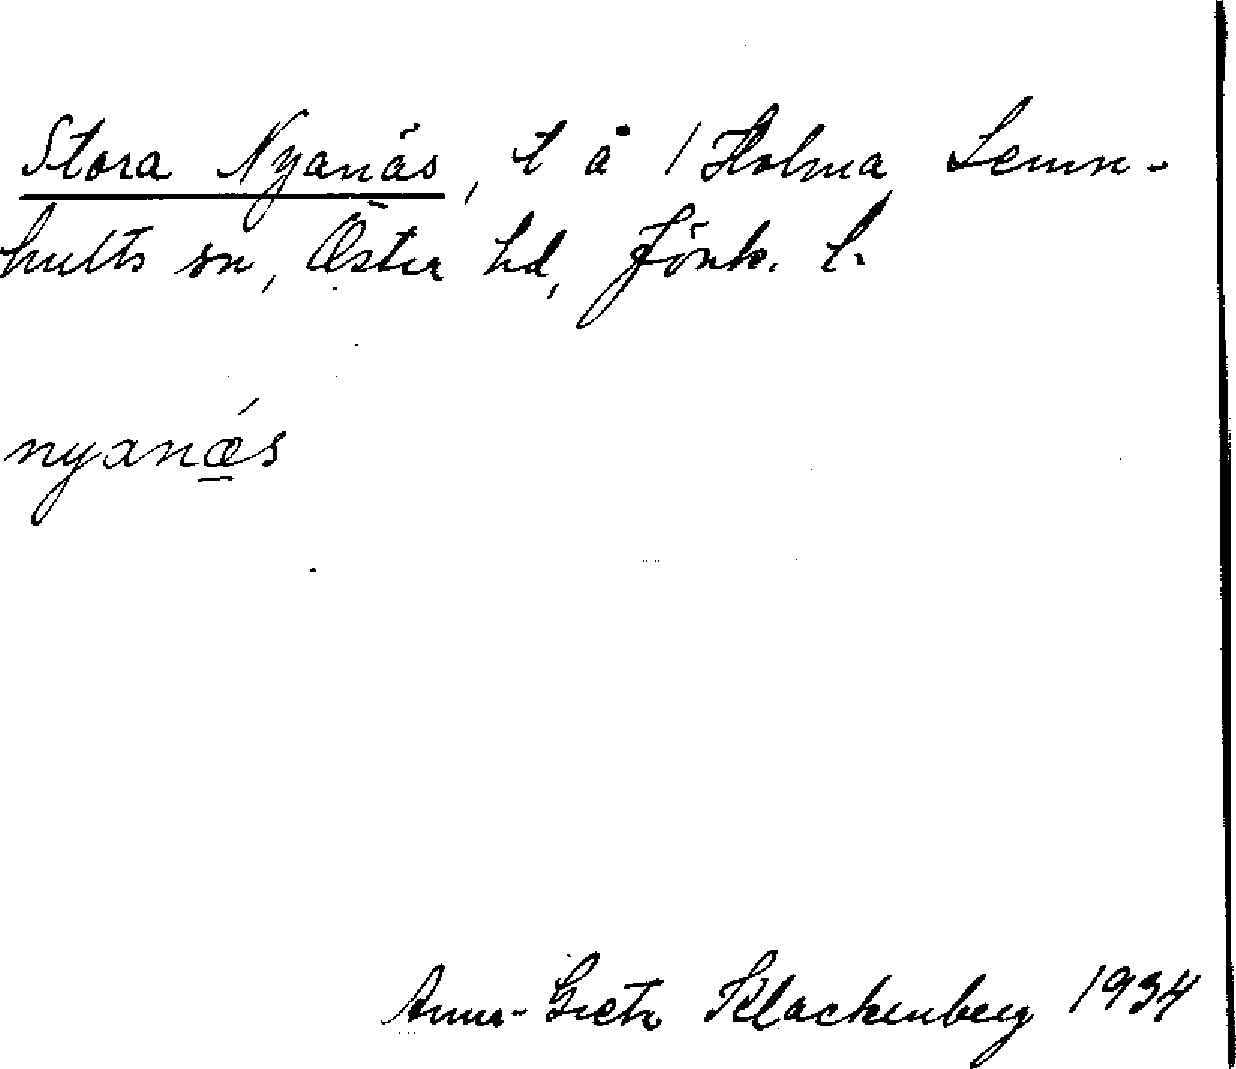 Stora Nyanäs, t å 1 Holma Lemn-
hults sn, Östra hd, Jönk. l.
nyanǽs
Anna-Greta Klackenberg 1934